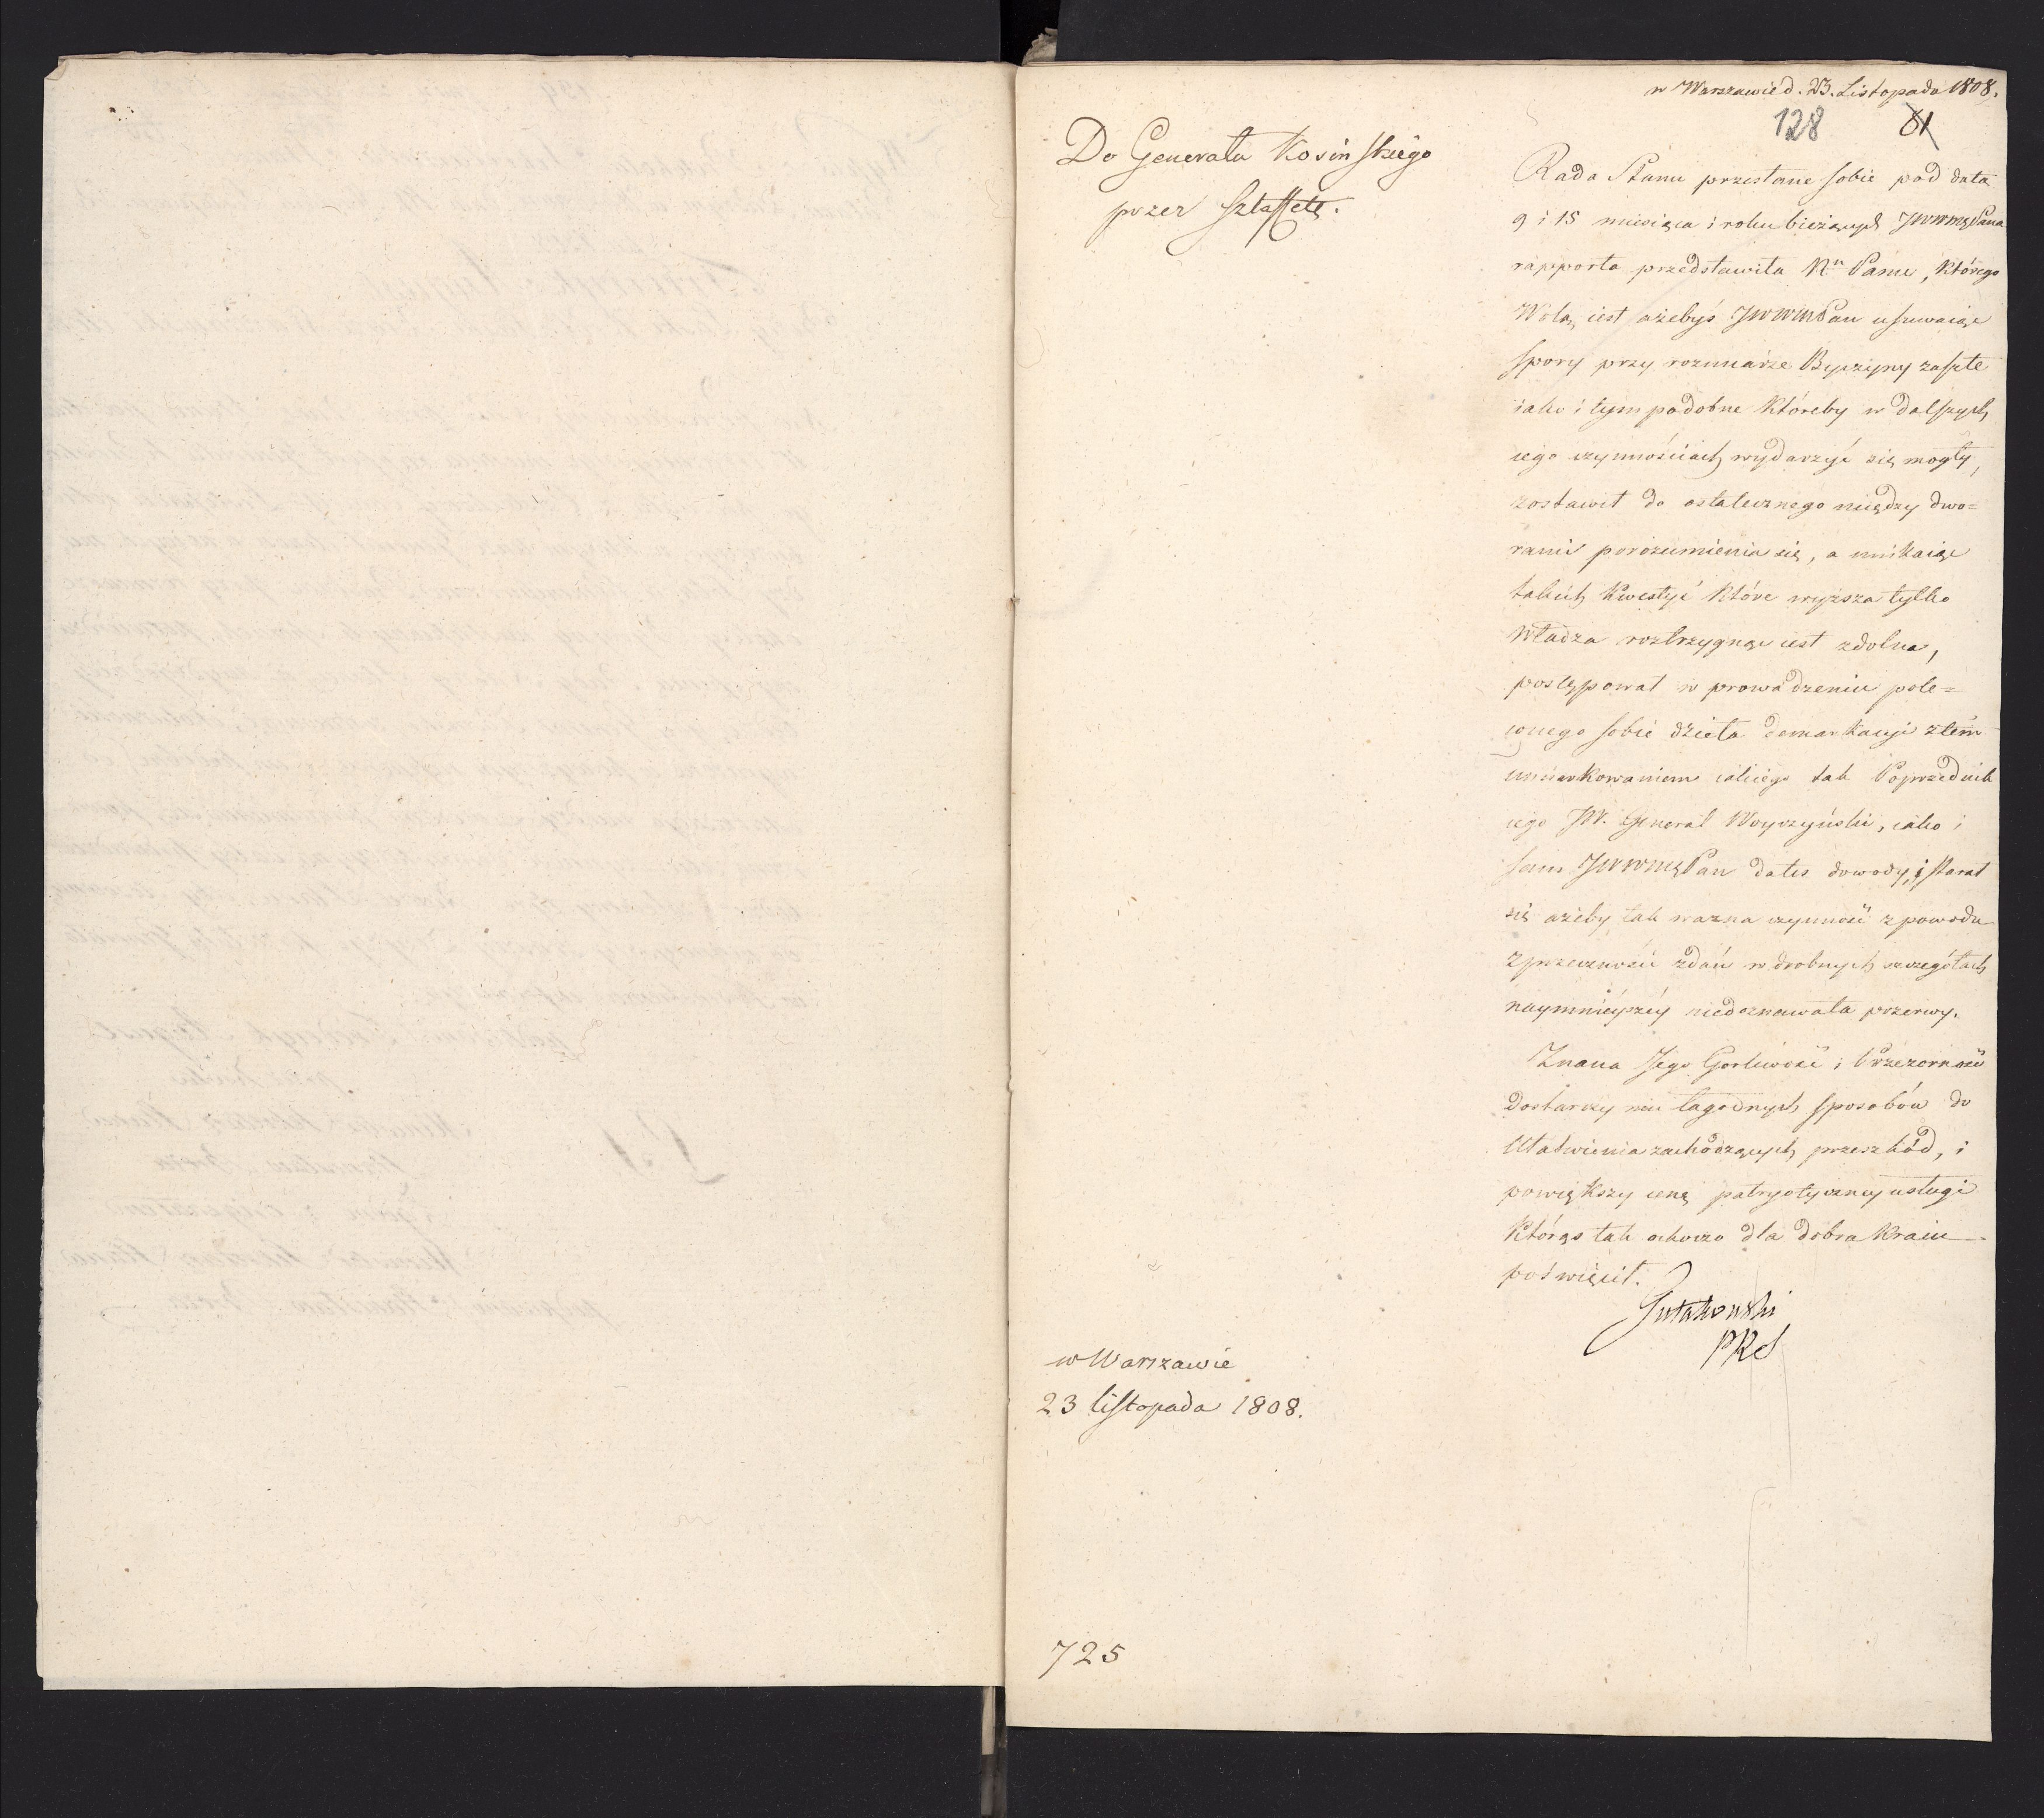 w Warszawie d. 23. Listopada 1808.
128 81
Do Generała Kosinskiego
przez sztaffetę.
Rada Stanu przesłane sobie pod datą
9 i 15 miesiąca i roku bieżących JWWMgPana
rapporta przedstawiła Nu Panu, którego
Wolą iest ażebyś JWWMPan usuwaiąc
spory przy rozmiarze Byczyny zaszłe
iako i tym podobne któreby w dalszych
iego czynnościach wydarzyć się mogły,
zostawił do ostatecznego między dwo=
rami porozumienia się, a unikaiąc
takich kwestyi które wyższa tylko
Władza roztrzygnąć iest zdolna,
postępował w prowadzeniu pole=
conego sobie dzieła demarkacyi z tém
umiarkowaniem iakiego tak Poprzednik
iego JW. Generał Woyczyński, iako i
sam JWWMgPan dałeś dowody, i starał
się ażeby tak ważna czynność z powodu
sprzeczności zdań w drobnych szczegółach
naymnieyszéy niedoznawała przerwy.
Znana Jego Gorliwość i Przezorność
dostarczy mu łagodnych sposobów do
Ułatwienia zachodzących przeszkód, i
powiększy cenę patryotyczney usługi
którąś tak ochoczo dla dobra Kraiu
poświęcił.
Gutakowski
PRS
w Warszawie
23 listopada 1808.
725